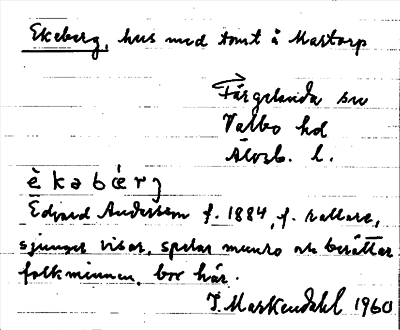 Ekeberg, hus med tomt å Martorp
Färgelanda sn
Valbo hd
Älvsb. l.
è k ə b œ́ r j
Edvard Andersson f. 1884, f. rallare,
sjunger visor, spelar munro och berättar
folkminnen, bor här.
I. Markendahl 1960